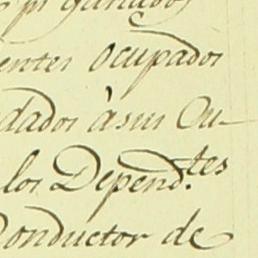 entes ocupados
dados à sus Cu-
los Depend.tes
Conductor de